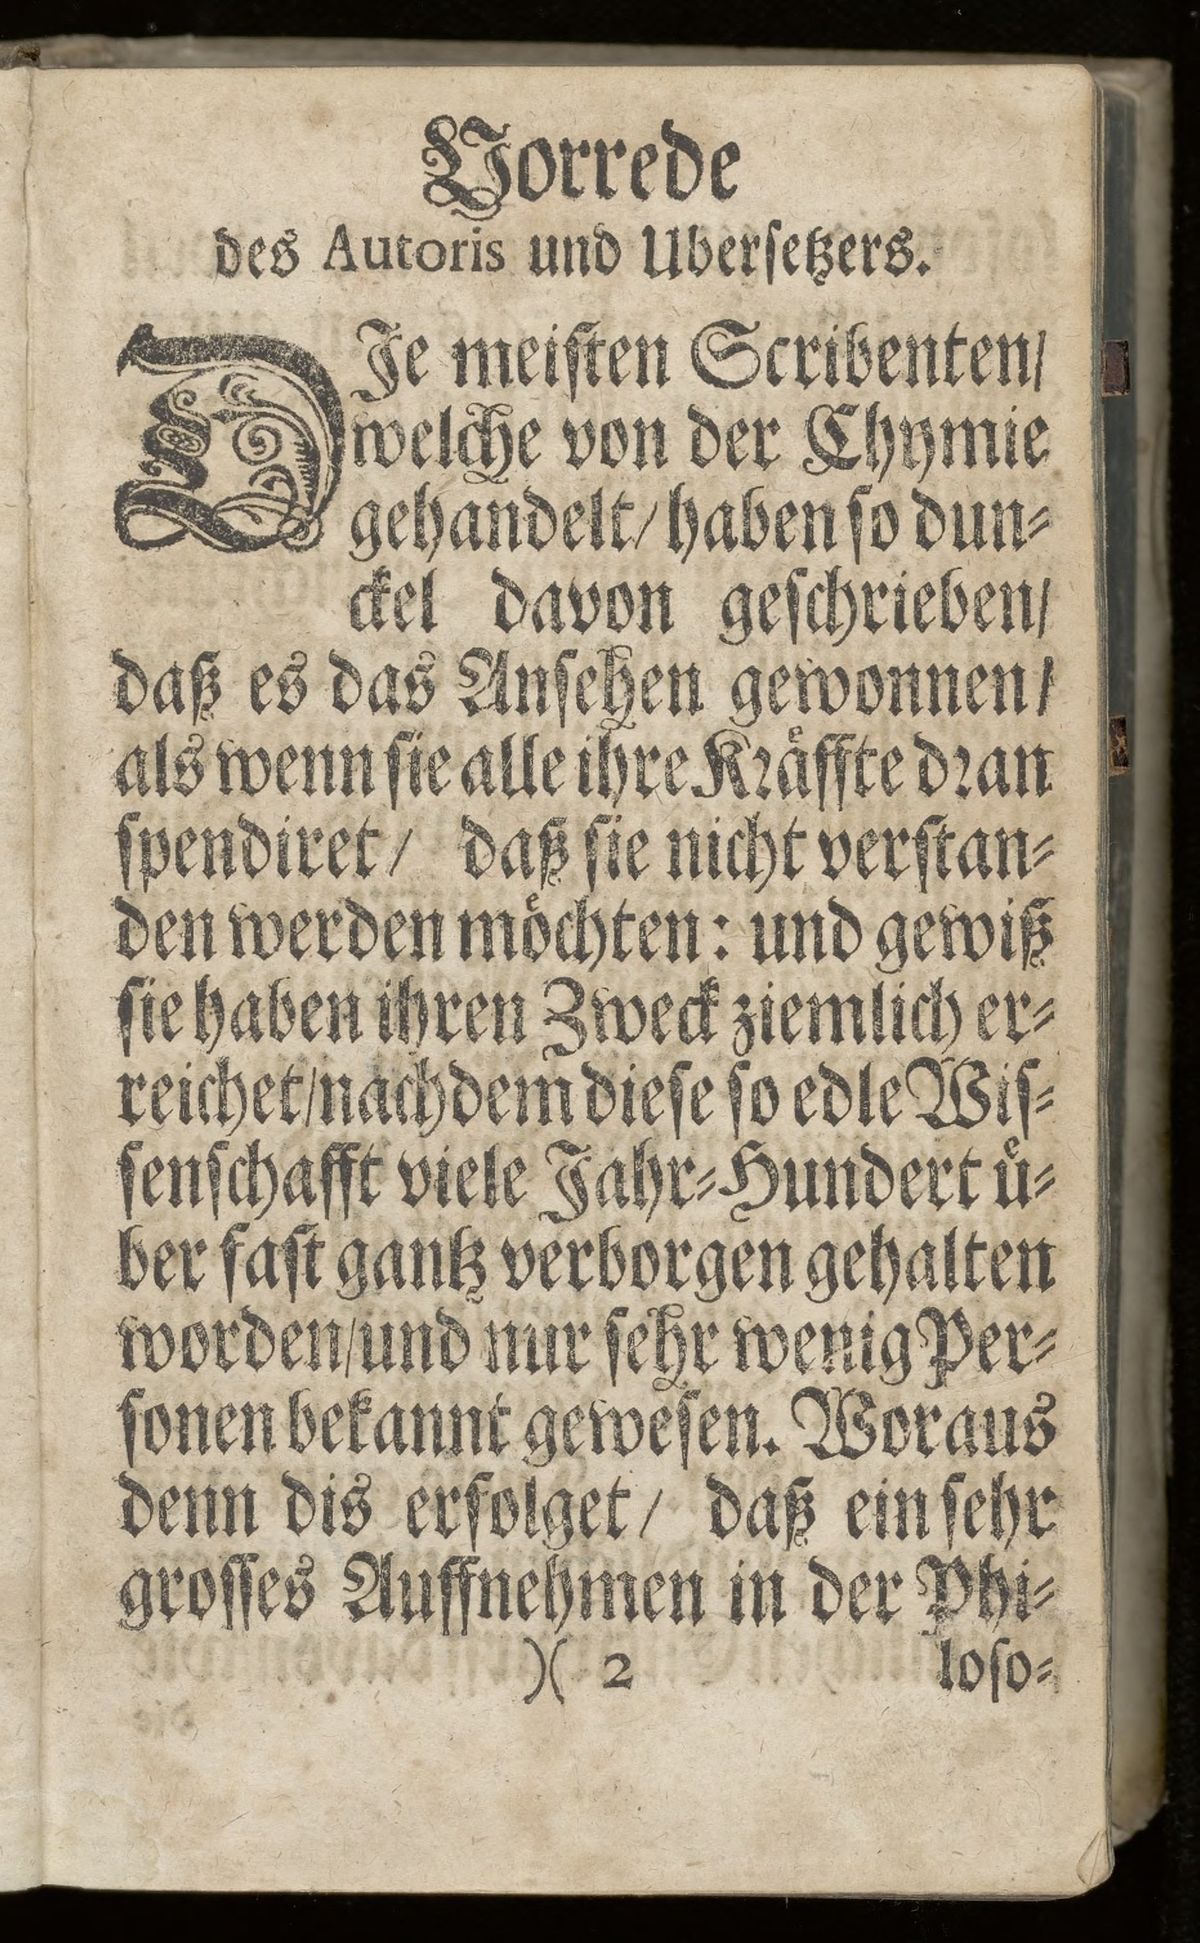 Vorrede
des Autoris und Ubersetzers.
DJe meisten Scribenten/
welche von der Chymie
gehandelt/ haben so dun-
ckel davon geschrieben/
daß es das Ansehen gewonnen/
als wenn sie alle ihre Kräffte dran
spendiret/ daß sie nicht verstan-
den werden möchten: und gewiß
sie haben ihren Zweck ziemlich er-
reichet/nachdem diese so edle Wis-
senschafft viele Jahr-Hundert ü-
ber fast gantz verborgen gehalten
worden/und nur sehr wenig Per-
sonen bekannt gewesen. Woraus
denn dis erfolget/ daß ein sehr
grosses Auffnehmen in der Phi-
)( 2 loso-